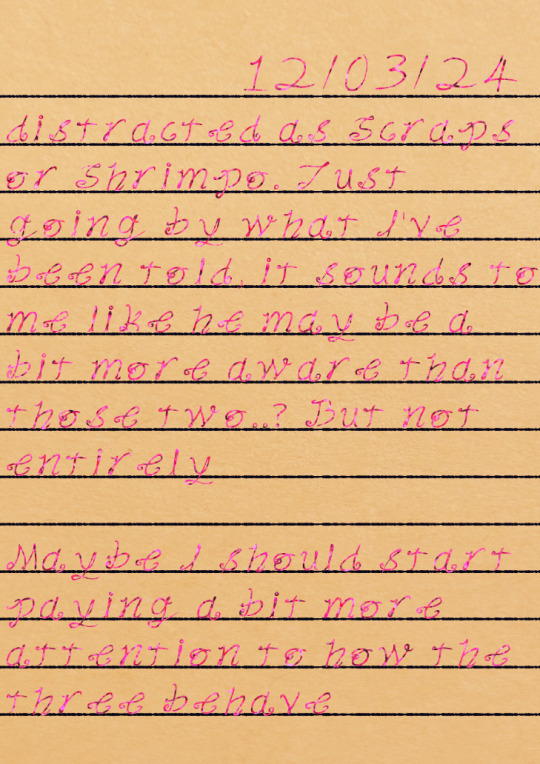 12/03/24
distracted as Scraps
or Shrimpo. Just
going by what I've
been told, it sounds to
me like he may be a
bit more aware than
those two..? But not
entirely
Maybe I should start
paying a bit more
attention to how the
three behave